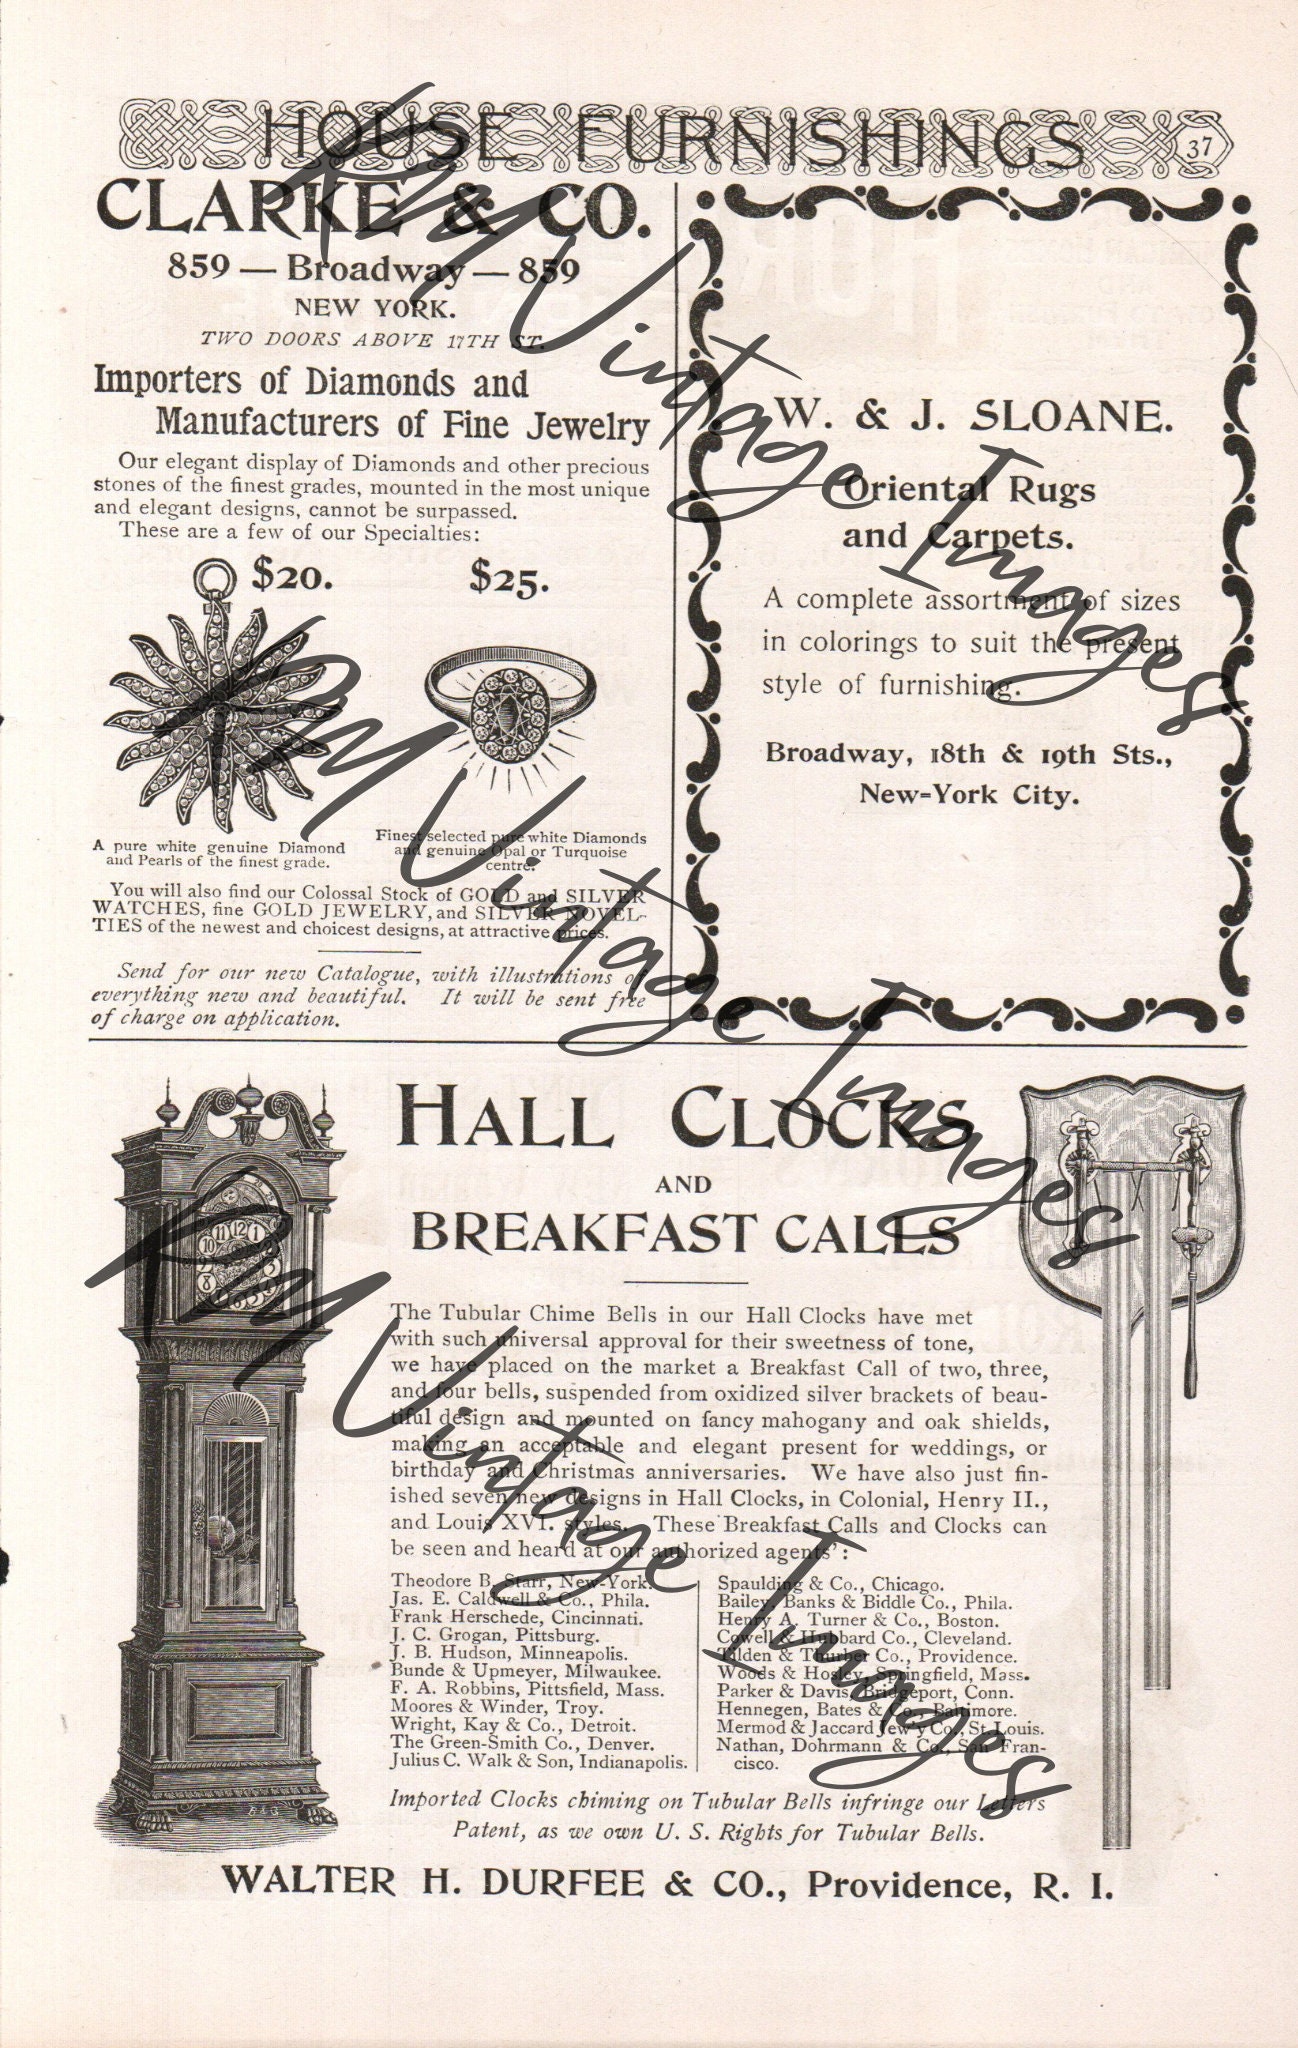 HOUSE FURNISHINGS
37
CLARKE & CO.
859 — Broadway — 859
NEW YORK.
TWO DOORS ABOVE 17TH ST.
Importers of Diamonds and
Manufacturers of Fine Jewelry
Our elegant display of Diamonds and other precious
stones of the finest grades, mounted in the most unique
and elegant designs, cannot be surpassed.
These are a few of our Specialties:
$20. $25.
A pure white genuine Diamond
and Pearls of the finest grade.
Finest selected pure white Diamonds
and genuine Opal or Turquoise
centre.
You will also find our Colossal Stock of GOLD and SILVER
WATCHES, fine GOLD JEWELRY, and SILVER NOVEL-
TIES of the newest and choicest designs, at attractive prices.
Send for our new Catalogue, with illustrations of
everything new and beautiful. It will be sent free
of charge on application.
W. & J. SLOANE.
Oriental Rugs
and Carpets.
A complete assortment of sizes
in colorings to suit the present
style of furnishing.
Broadway, 18th & 19th Sts.,
New-York City.
HALL CLOCKS
AND
BREAKFAST CALLS
The Tubular Chime Bells in our Hall Clocks have met
with such universal approval for their sweetness of tone,
we have placed on the market a Breakfast Call of two, three,
and four bells, suspended from oxidized silver brackets of beau-
tiful design and mounted on fancy mahogany and oak shields,
making an acceptable and elegant present for weddings, or
birthday and Christmas anniversaries. We have also just fin-
ished seven new designs in Hall Clocks, in Colonial, Henry II.,
and Louis XVI. styles. These Breakfast Calls and Clocks can
be seen and heard at our authorized agents':
Theodore B. Starr, New-York.
Jas. E. Caldwell & Co., Phila.
Frank Herschede, Cincinnati.
J. C. Grogan, Pittsburg.
J. B. Hudson, Minneapolis.
Bunde & Upmeyer, Milwaukee.
F. A. Robbins, Pittsfield, Mass.
Moores & Winder, Troy.
Wright, Kay & Co., Detroit.
The Green-Smith Co., Denver.
Julius C. Walk & Son, Indianapolis.
Spaulding & Co., Chicago.
Bailey, Banks & Biddle Co., Phila.
Henry A. Turner & Co., Boston.
Cowell & Hubbard Co., Cleveland.
Tilden & Thurber Co., Providence.
Woods & Hosley, Springfield, Mass.
Parker & Davis, Bridgeport, Conn.
Hennegen, Bates & Co., Baltimore.
Mermod & Jaccard Jew'y Co., St. Louis.
Nathan, Dohrmann & Co., San Fran-
cisco.
Imported Clocks chiming on Tubular Bells infringe our Letters
Patent, as we own U. S. Rights for Tubular Bells.
WALTER H. DURFEE & CO., Providence, R. I.
RM Vintage Images
RM Vintage Images
RM Vintage Images